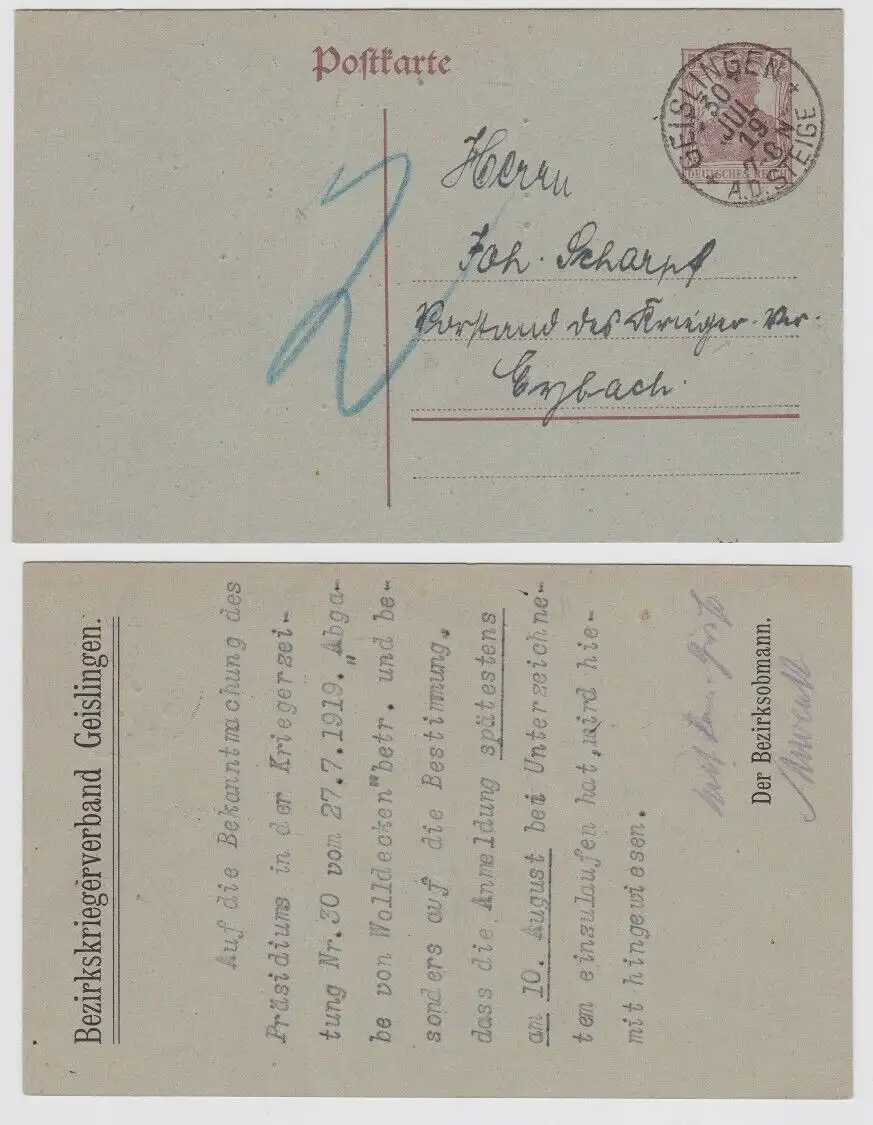 Postkarte
GEISLINGEN
30 JUL 19
A.D. STEIGE
DEUTSCHES REICH
2
Herrn
Joh. Scharpf
Vorstand des Krieger-Ver-
Eybach.
Bezirkskriegerverband Geislingen.
Auf die Bekanntmachung des
Präsidiums in der Kriegerzei-
tung Nr.30 vom 27.7.1919. "Abga-
be von Wolldecken"betr. und be-
sonders auf die Bestimmung,
dass die Anmeldung spätestens
am 10. August bei Unterzeichne-
tem einzulaufen hat, wird hie-
mit hingewiesen.
Der Bezirksobmann.